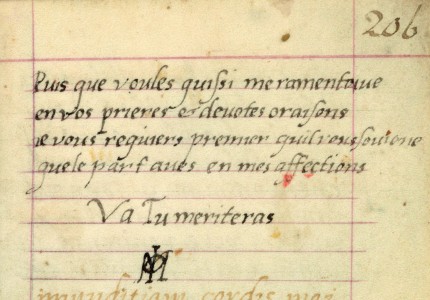 206
Puis que voules quissi me ramentoive
en vos prieres & devotes oraisons
ie vous requiers premier quil vous souiene
quele part aves en mes affections
Va Tu meriteras
immuditiam cordis mei